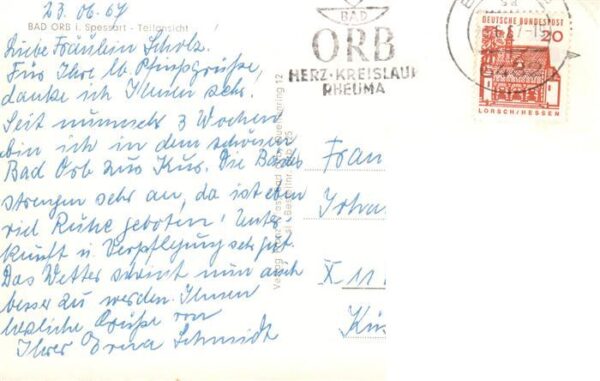 23.06.67
BAD ORB i. Spessart - Teilansicht
Liebe Fräulein Scholz.
Für Ihre lb. Pfingstgrüße,
danke ich Ihnen sehr.
Seit nunmehr 3 Wochen
bin ich in dem schönen
Bad Orb zur Kur. Die Bäder
strengen sehr an, da ist eben
viel Ruhe geboten! Unter-
kunft u. Verpflegung sehr gut.
Das Wetter scheint nun auch
besser zu werden. Ihnen
herzliche Grüße von
Ihrer Erna Schmidt
BAD
ORB
HERZ-KREISLAUF
RHEUMA
DEUTSCHE BUNDESPOST
20
LORSCH/HESSEN
Frau
X 11